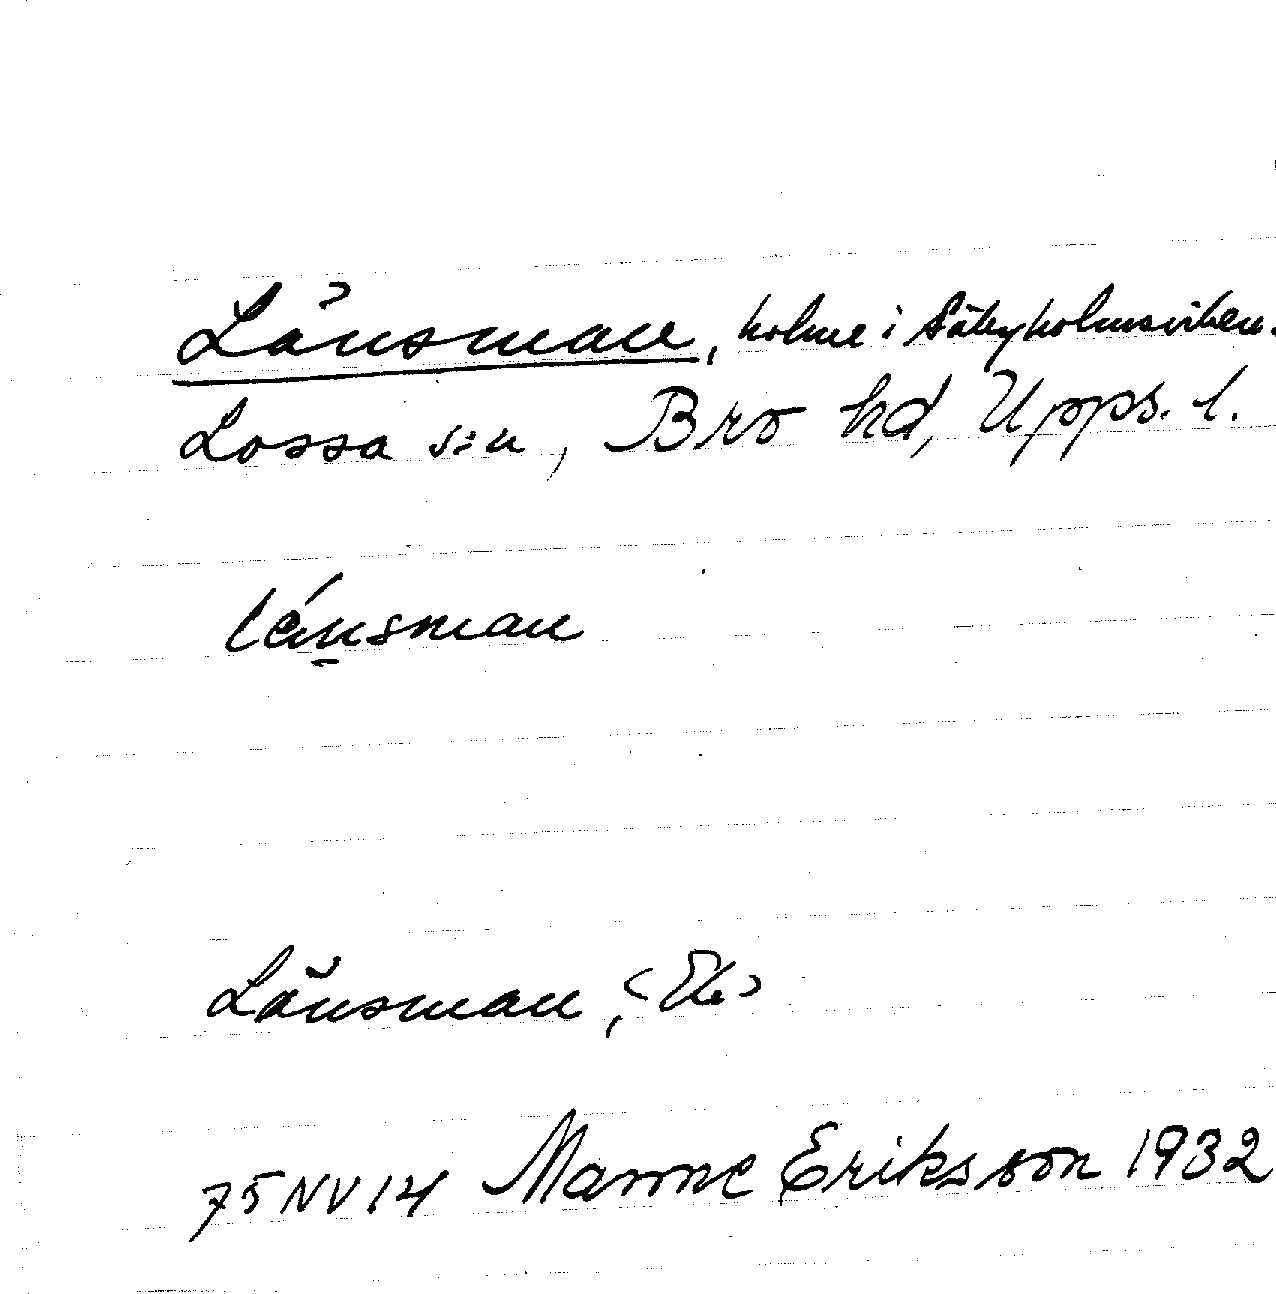 Länsman, holme i Säbyholmsviken.
Lossa s:n, Bro hd, Upps. l.
länsman
Länsman, <Ek>
75 NV 14 Manne Eriksson 1932